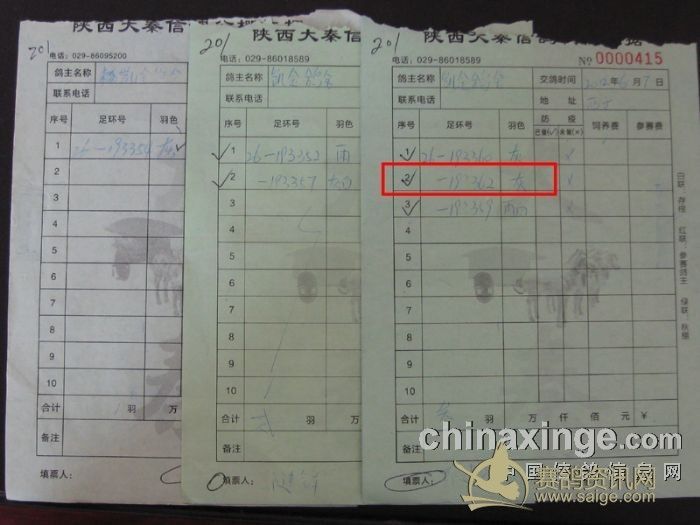 201
陕西大秦信
电话：029-86095200
鸽主名称
联系电话
序号 足环号 羽色
1 26-193354 灰
2
3
4
5
6
7
8
9
10
合计 羽 万
备注
填票人：
201
陕西大秦信
电话：029-86018589
鸽主名称
联系电话
序号 足环号 羽色
1 26-193352 雨
2 -193357
3
4
5
6
7
8
9
10
合计 弍 羽 万
备注
填票人：
201
陕西大秦信鸽
电话：029-86018589 № 0000415
鸽主名称 交鸽时间 2012年6月7日
联系电话 地址
序号 足环号 羽色 防疫 饲养费 参赛费
已做(√)未做(×)
1 26-193360 灰
2 -193362 灰
3 -193359
4
5
6
7
8
9
10
合计 叁 羽 万 仟 佰 元 ￥
备注
填票人：
白联：存根 红联：参赛鸽主 绿联：秋棚
chinaxinge.com
中国信鸽信息网
赛鸽资讯网
www.saige.com